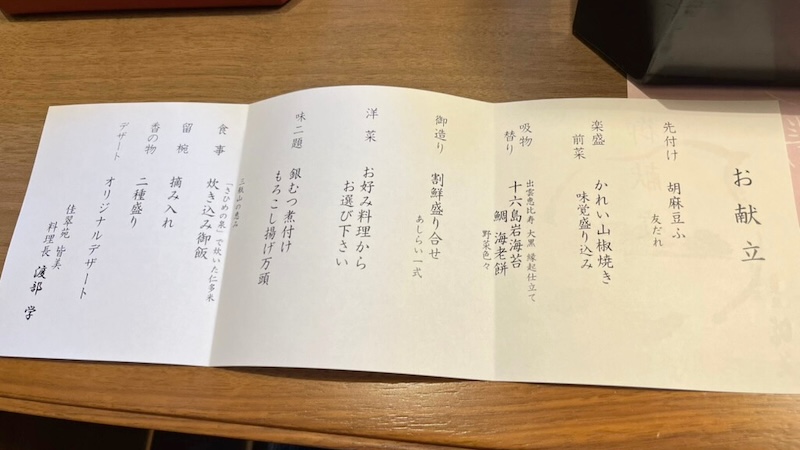 お献立
先付け 胡麻豆ふ
友だれ
楽盛 かれい山椒焼き
前菜 味覚盛り込み
吸物 出雲恵比寿 大黒 縁起仕立て
替り 十六島岩海苔
鯛 海老餅
野菜色々
御造り 割鮮盛り合せ
あしらい一式
洋菜 お好み料理から
お選び下さい
味二題 銀むつ煮付け
もろこし揚げ万頭
三瓶山の恵み
「さひめの泉」で炊いた仁多米
食事 炊き込み御飯
留椀 摘み入れ
香の物 二種盛り
デザート オリジナルデザート
佳翠苑 皆美
料理長 渡部 学